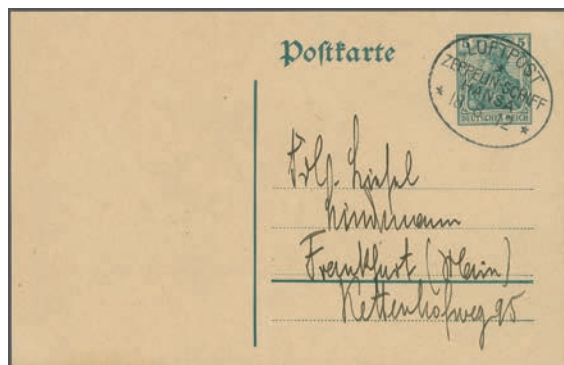 Postkarte
5
LUFTPOST
ZEPPELIN-SCHIFF
HANSA
DEUTSCHES REICH
Liesel
Lindemann
Frankfurt (Main)
Kettenhofweg 95